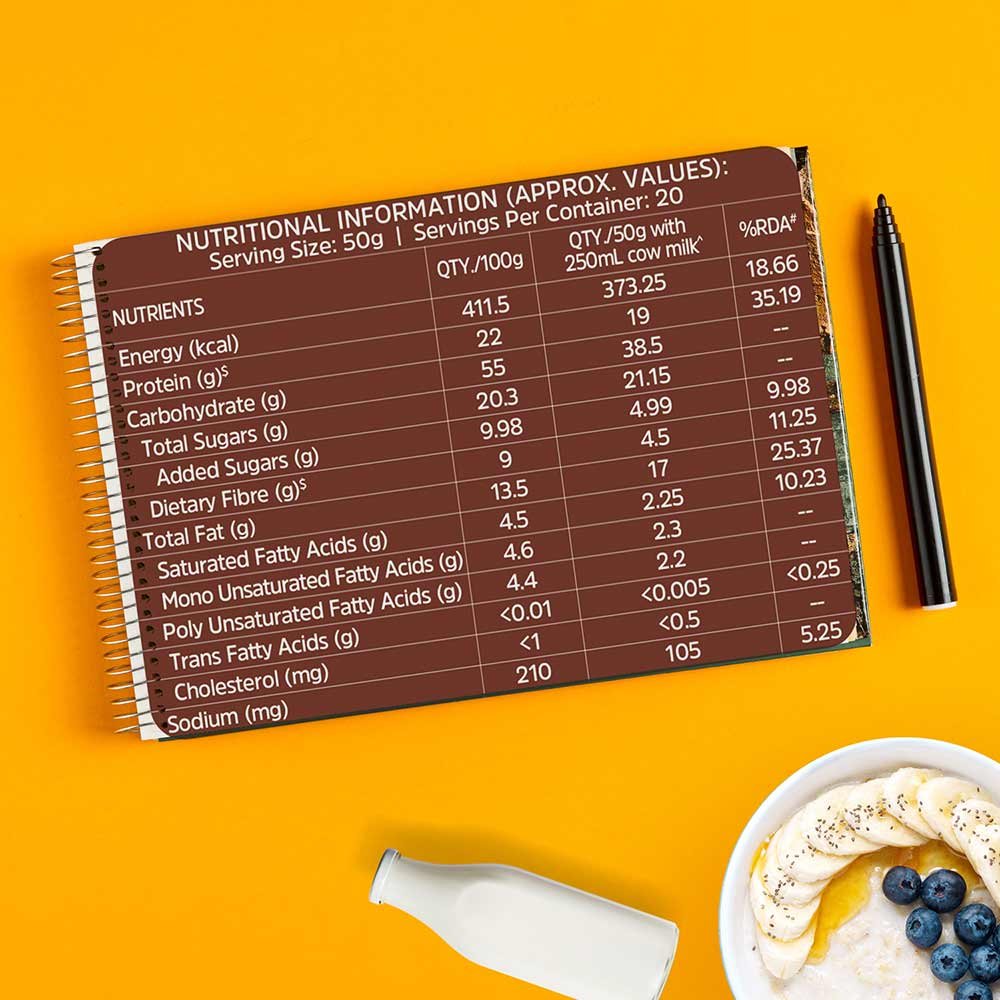 NUTRITIONAL INFORMATION (APPROX. VALUES):
Serving Size: 50g | Servings Per Container: 20
NUTRIENTS QTY./100g QTY./50g with 250mL cow milk^ %RDA#
Energy (kcal) 411.5 373.25 18.66
Protein (g)$ 22 19 35.19
Carbohydrate (g) 55 38.5 --
Total Sugars (g) 20.3 21.15 --
Added Sugars (g) 9.98 4.99 9.98
Dietary Fibre (g)$ 9 4.5 11.25
Total Fat (g) 13.5 17 25.37
Saturated Fatty Acids (g) 4.5 2.25 10.23
Mono Unsaturated Fatty Acids (g) 4.6 2.3 --
Poly Unsaturated Fatty Acids (g) 4.4 2.2 --
Trans Fatty Acids (g) <0.01 <0.005 <0.25
Cholesterol (mg) <1 <0.5 --
Sodium (mg) 210 105 5.25